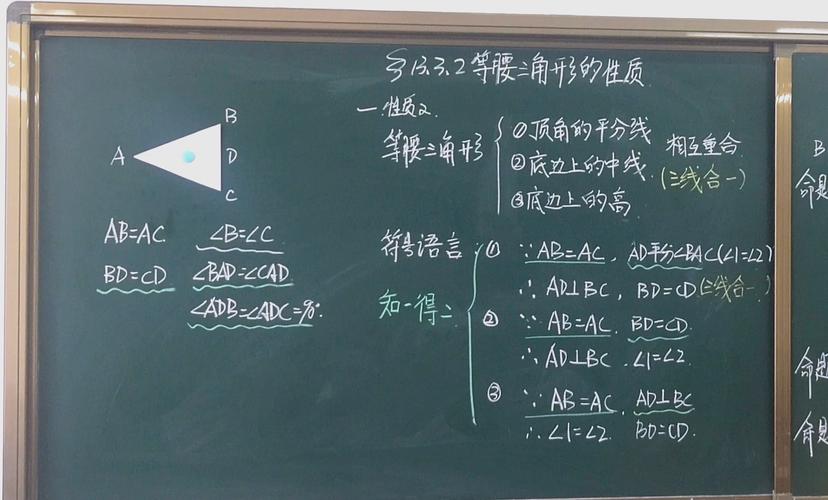 §13.3.2等腰三角形的性质
一.性质2.
等腰三角形
①顶角的平分线
②底边上的中线
③底边上的高
相互重合
(三线合一)
A
B
D
C
AB=AC ∠B=∠C
BD=CD ∠BAD=∠CAD
∠ADB=∠ADC=90°.
符号语言
知一得二
① ∵AB=AC, AD平分∠BAC(∠1=∠2)
∴AD⊥BC, BD=CD(三线合一)
② ∵AB=AC, BD=CD
∴AD⊥BC, ∠1=∠2.
③ ∵AB=AC, AD⊥BC
∴∠1=∠2. BD=CD.
B
命题
命题
命题